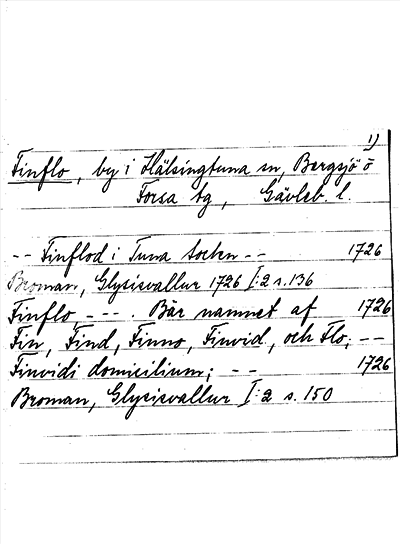 1)
Finflo, by i Hälsingtuna sn, Bergsjö o
Forsa tg, Gävleb. l.
-- Finflod i Tuna socken -- 1726
Broman, Glysisvallur 1726 I:2 s.136
Finflo ---. Bär namnet af 1726
Fin, Find, Finno, Finvid, och Flo; --
Finvidi domicilium; -- 1726
Broman, Glysisvallur I:2 s. 150